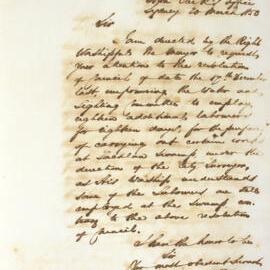 Office
Sydney 20 March 185
Sir
I am directed by the Right
Worshipful the Mayor to request
Your attention to the resolution
of Council of date the 17th December
last, empowering the Water and
Lighting Committee to employ
eighteen additional labourers
for eighteen days, for the purpose
of carrying out certain works
at Lachlan Swamp under the
direction of the City Surveyor
as His Worship understands
some of the labourers are still
employed at the Swamp con
to the above resolution
of Council.
I have the honor to be
Sir
Your most obedient Servant